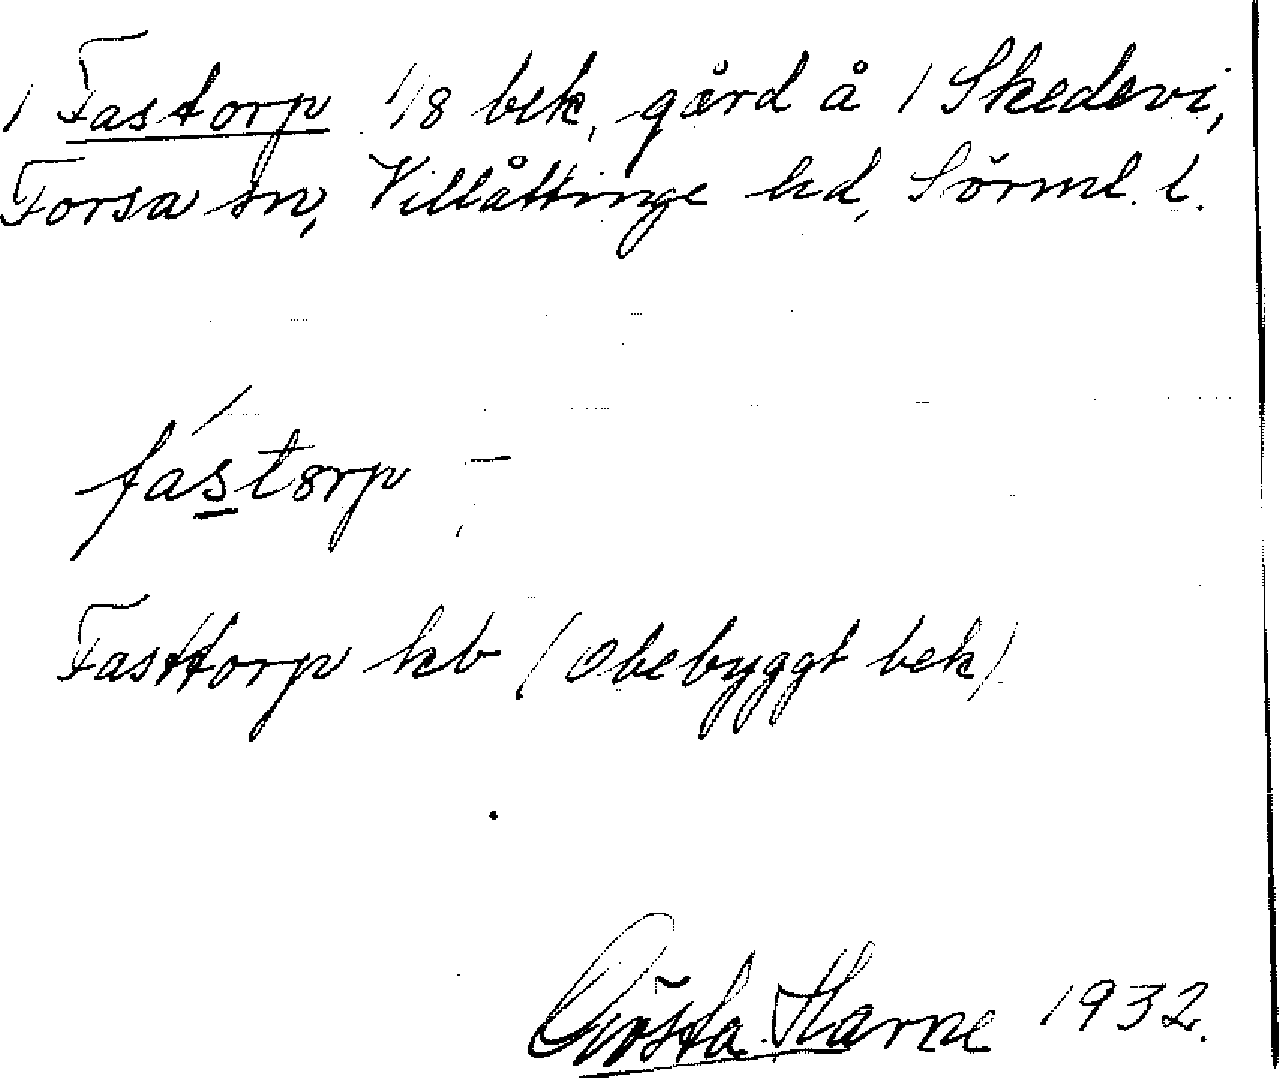 / Fastorp 1/8 bek, gård å / Skedevi,
Forsa sn, Villåttinge hd, Sörml. l.
fástorp, -
Fasttorp kb (Obebyggt bek)
Gösta Harne 1932.